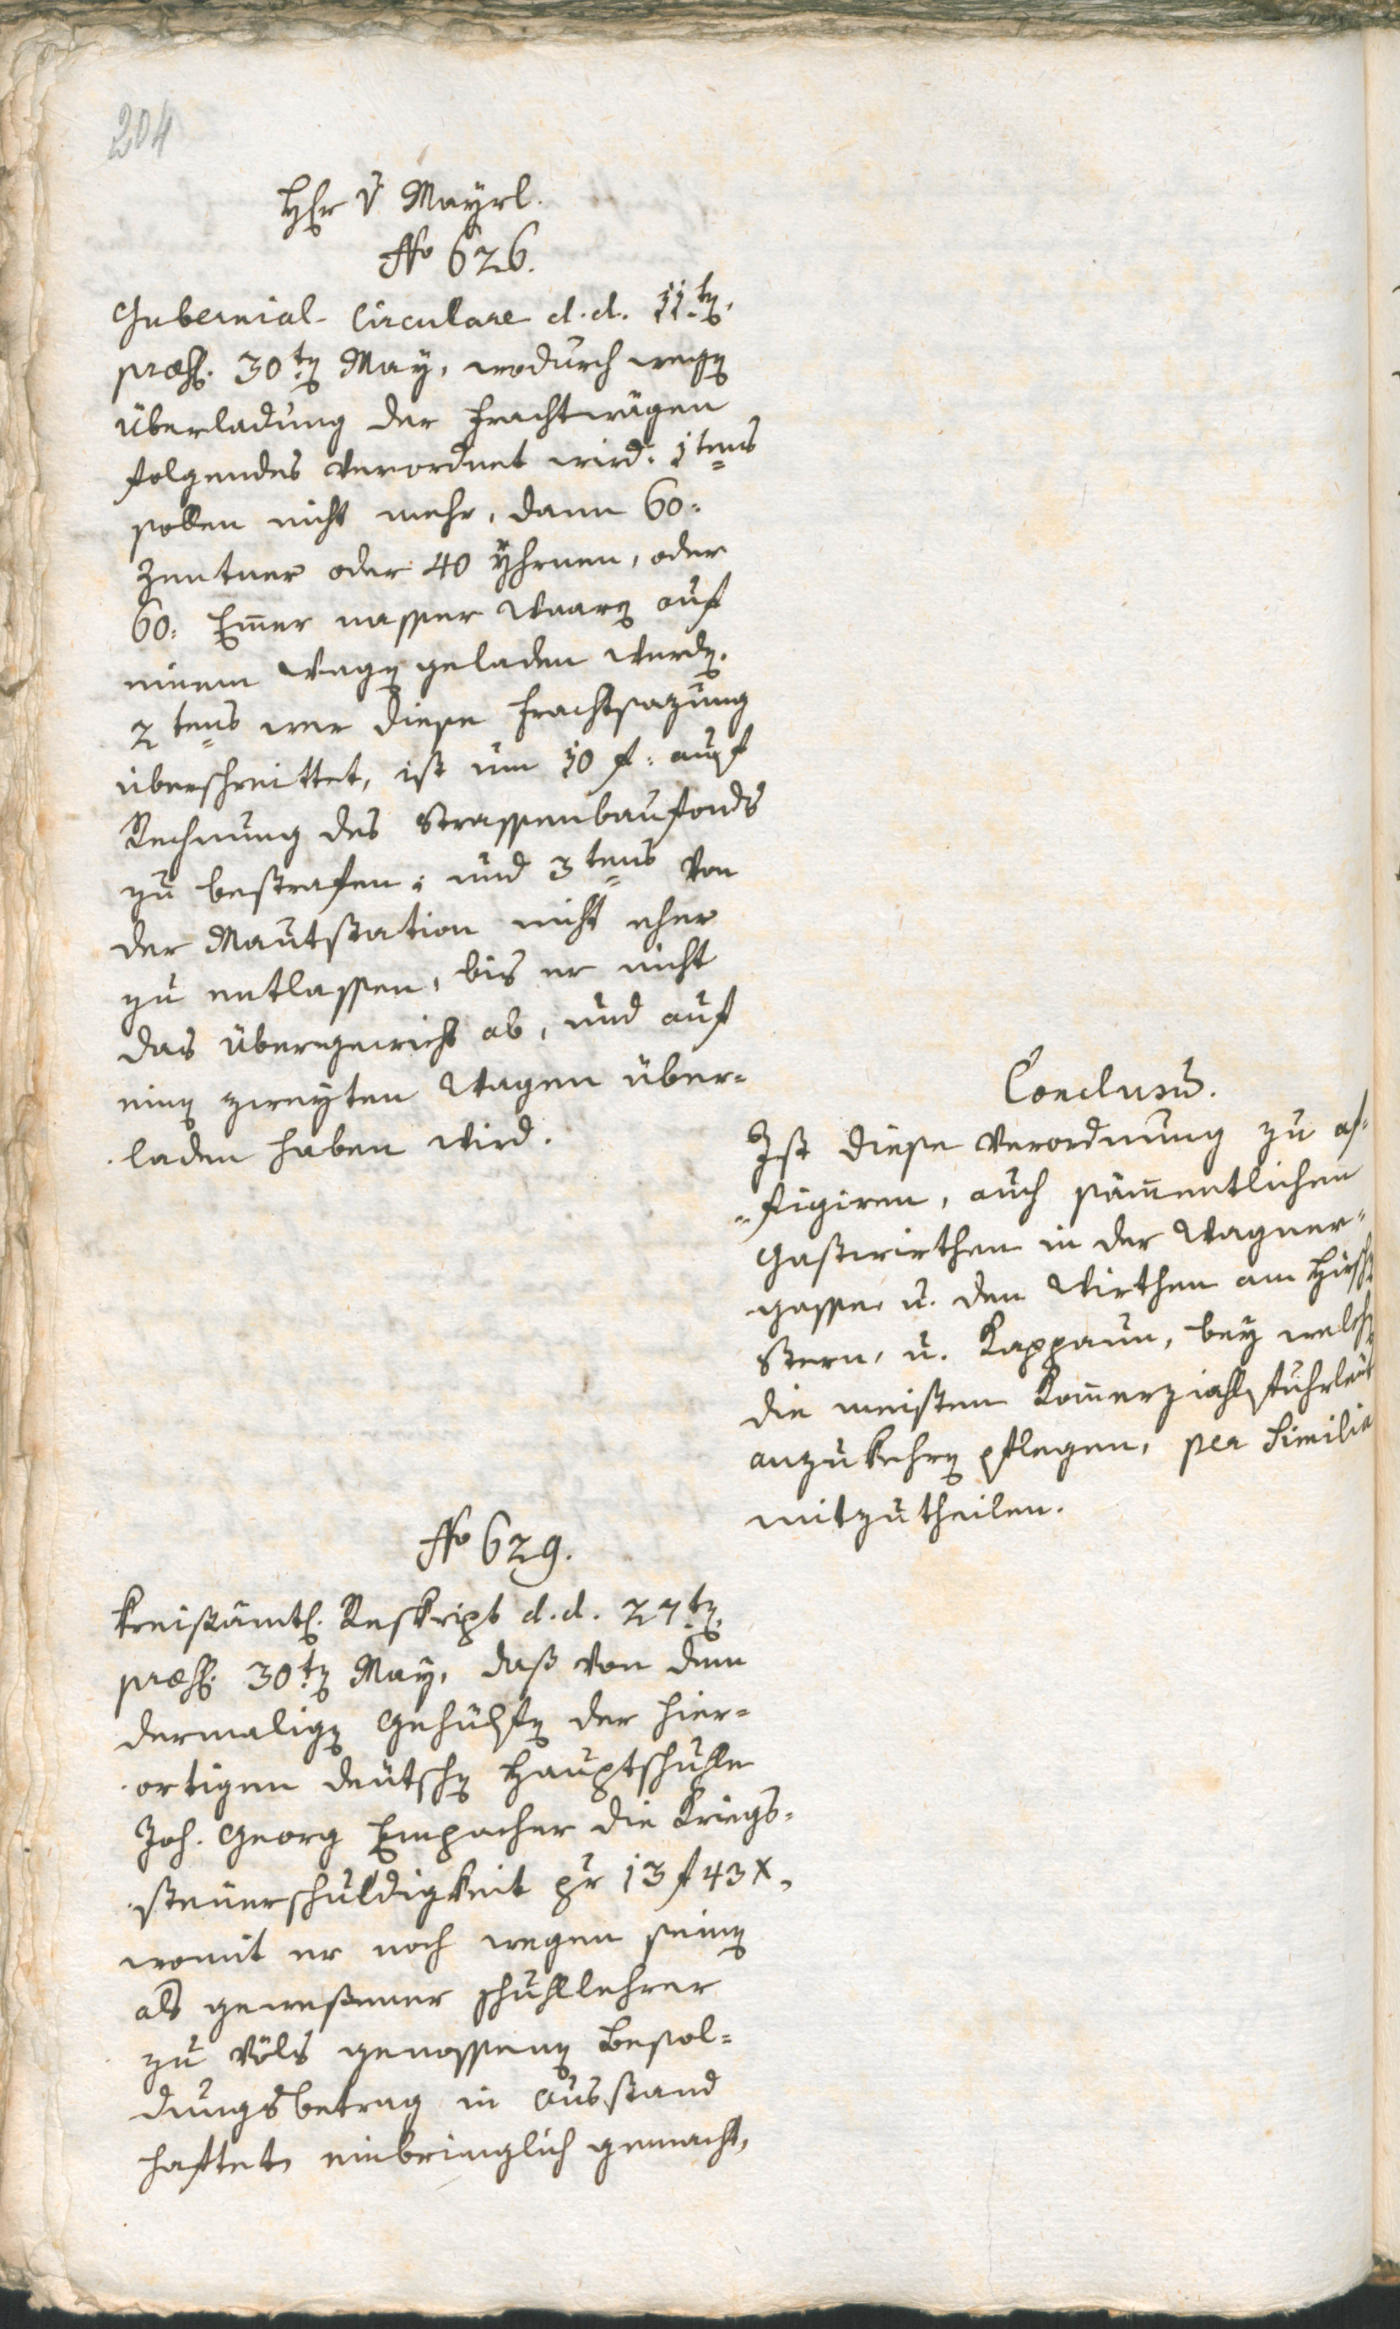 204
Hr v Mayrl.
No 626.
Gubernial-Circulare d. d. 11ten,
præs. 30ten May, wodurch wegen
Überladung der Frachtwägen
folgendes verordnet wird: 1tens
sollen nicht mehr, dann 60:
Zentner oder 40 Yhrnen, oder
60: Emer nasser Waaren auf
einem Wagen geladen werden.
2tens wer diese Frachtsazung
überschreittet, ist um 10 f: auf
Rechnung des Strassenbaufonds
zu bestrafen; und 3tens von
der Mautstation nicht eher
zu entlassen, bis er nicht
das Übergewicht ab, und auf
einen zweyten Wagen über-
laden haben wird.
Conclusum.
Ist diese Verordnung zu af-
figiren, auch sämentlichen
Gastwirthen in der Wagner-
gasse u. den Wirthen am Hirschen
Stern, u. Kappaun, bey welchen
die meisten Komerzialfuhrleut
anzukehren pflegen, per Similia
mitzutheilen.
No 629.
Kreisämtl. Reskript d. d. 27ten,
præs. 30ten May, daß von dem
dermaligen Gehülfen der hier-
ortigen deutschen Hauptschulle
Joh. Georg Empacher die Kriegs-
steuerschuldigkeit pr 13 f 43 x,
womit er noch wegen seinen
als gewesener Schullehrer
zu Völs genossenen Besol-
dungsbetrag in Ausstand
haftet, einbringlich gemacht,